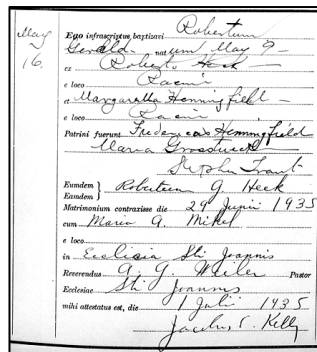 May
16.
Ego infrascriptus baptisavi Robertum
Gerald natum May 9 -
ex Roberto Heck
e loco Racine
et Margaretta Hemmingfield -
e loco Racine
Patrini fuerunt Fredericus Hemmingfield
Maria
Stephen
Eumdem } Robertum G. Heck
Eamdem }
Matrimonium contraxisse die 29 Junii 1935
cum Maria A. Mikel
e loco
in Ecclesia Sti Joannis
Reverendus A. G. Weiler Pastor
Ecclesiae Sti Joannis
mihi attestatus est, die 1 Julii 1935
Jacobus C. Kelly